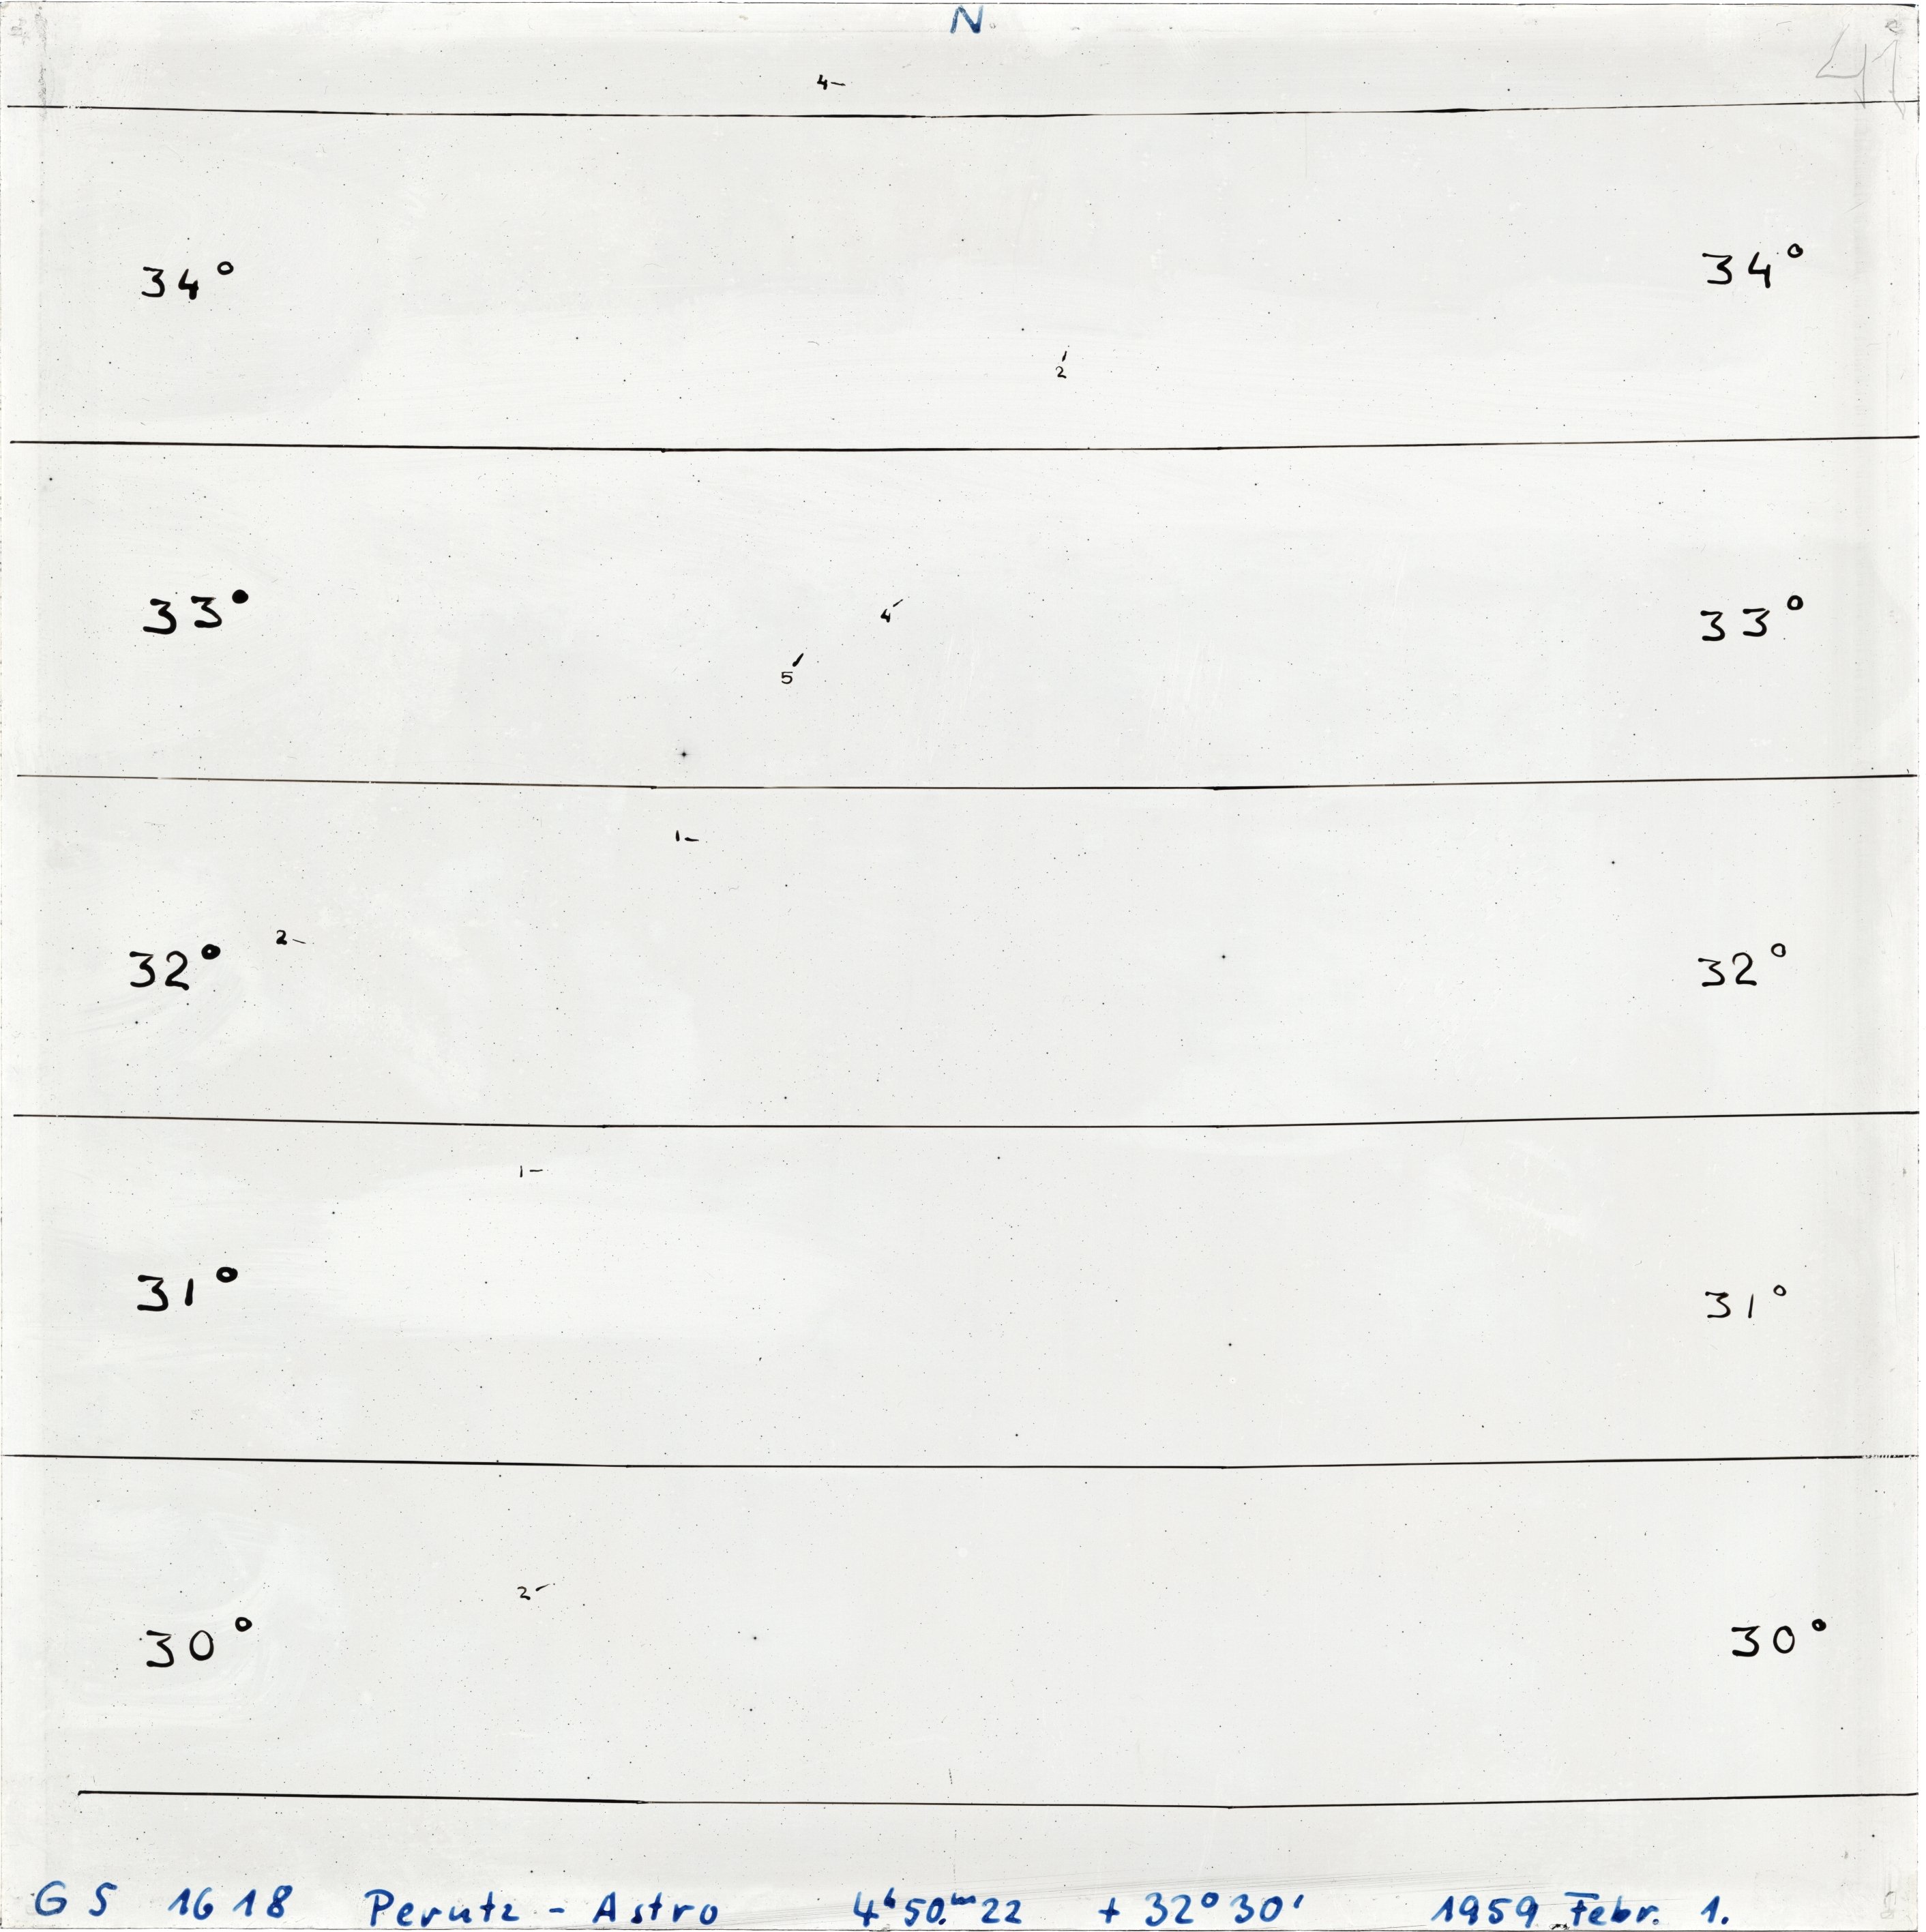 N.
41
4-
34° 34°
2
33° 33°
4
5
1-
2-
32° 32°
1-
31° 31°
2-
30° 30°
GS 1618 Perutz - Astro 4ʰ50.ᵐ22 + 32°30' 1959 Febr. 1.